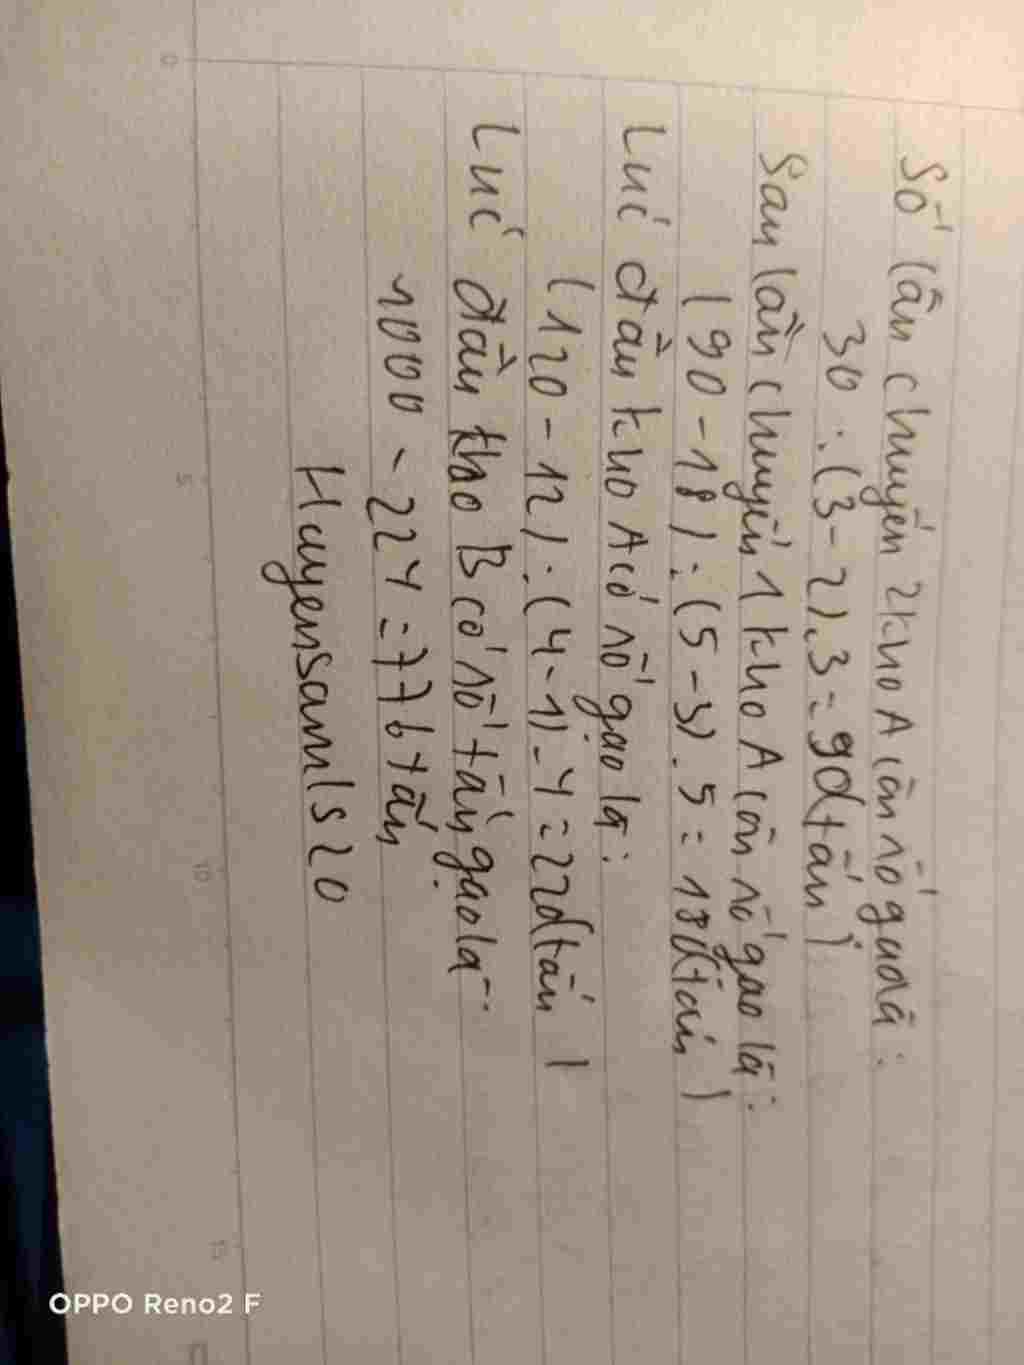 Số lần chuyển 2 kho A còn nố guđā :
30 : (3-2).3 = 90(tấn)
Sau lần chuyển 1 kho A còn nố gao là :
(90-18) : (5-3) . 5 = 180(tấn)
Lúc đầu kho A có nố gạo là :
(120-12) : (4-1)-4=220(tấn)
Lúc đầu kho B có nố tấn gạo là :
1000 - 224 = 776 tấn
Huyensamls20
0
5
10
15
OPPO Reno2 F